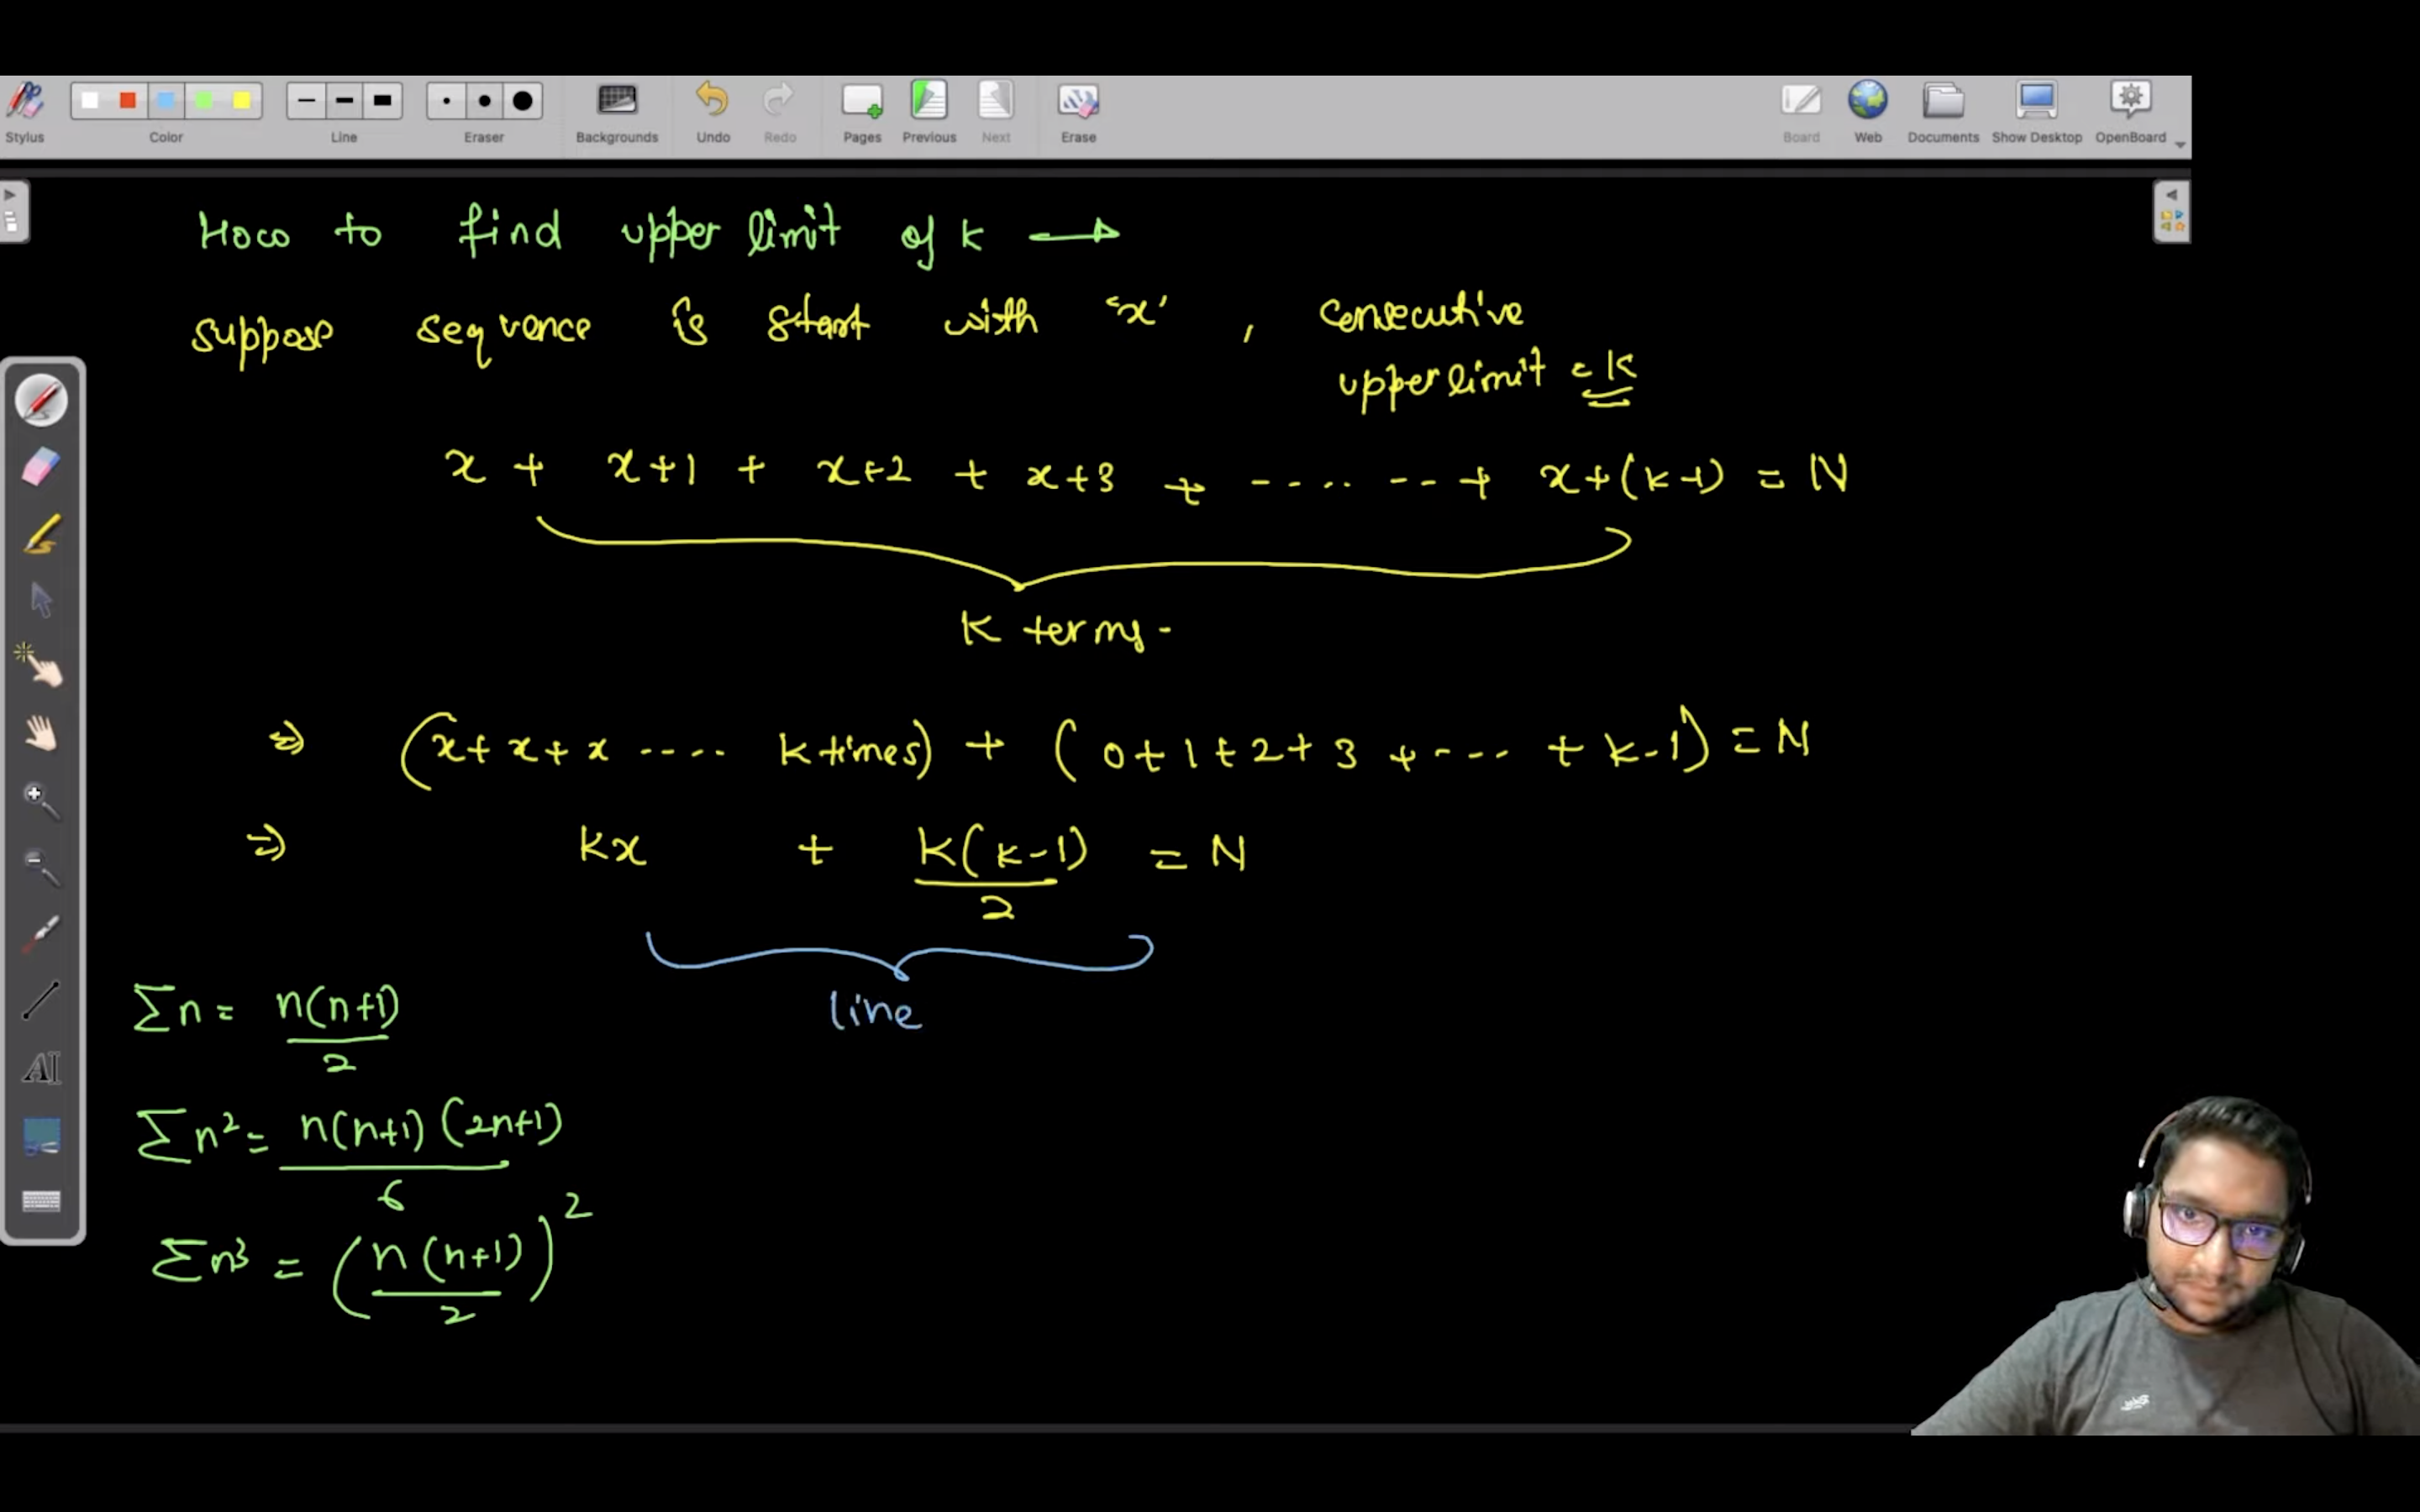 Stylus Color Line Eraser Backgrounds Undo Redo Pages Previous Next Erase Board Web Documents Show Desktop OpenBoard
How to find upper limit of k →
suppose sequence is start with 'x' , consecutive
upper limit = k
x + x+1 + x+2 + x+3 + - - - - - - + x+(k-1) = N
K terms -
⇒ (x+x+x ---- k times) + (0+1+2+3+---+k-1) = N
⇒ kx + k(k-1)/2 = N
line
Σn = n(n+1)/2
Σn² = n(n+1)(2n+1)/6
Σn³ = (n(n+1)/2)²